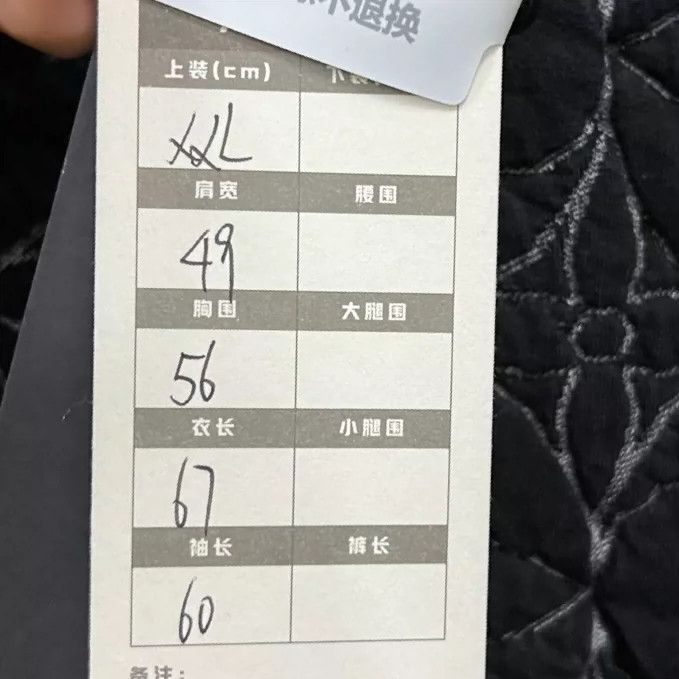 不退换
上装(cm)
XXL
肩宽 腰围
49
胸围 大腿围
56
衣长 小腿围
67
袖长 裤长
60
备注：